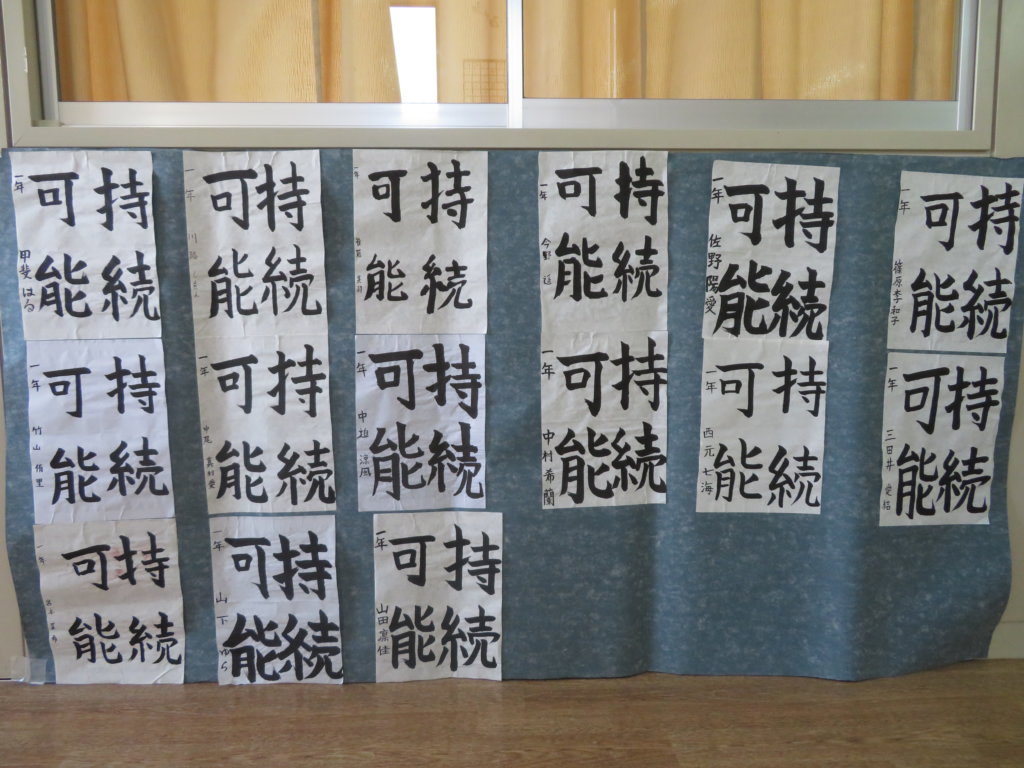 持続
可能
一年
甲斐はる
持続
可能
一年
持続
可能
持続
可能
一年
今野
持続
可能
一年
佐野陽愛
持続
可能
一年
篠原李和子
持続
可能
一年
竹山
持続
可能
一年
持続
可能
一年
中迫涼風
持続
可能
一年
中村希蘭
持続
可能
一年
西元七海
持続
可能
一年
三田井愛結
持続
可能
一年
持続
可能
一年
山下
持続
可能
一年
山田凛佳